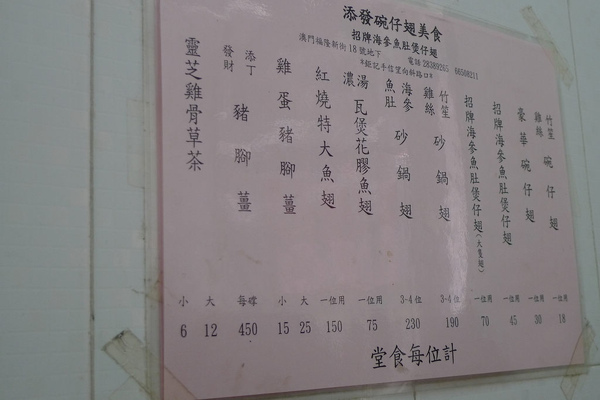 添發碗仔翅美食
招牌海參魚肚煲仔翅
澳門福隆新街18號地下 電話 28389245 66508211
*鉅記手信望向斜路口*
竹笙雞絲碗仔翅 一位用 18
豪華碗仔翅 一位用 30
招牌海參魚肚煲仔翅 一位用 45
招牌海參魚肚煲仔翅(大隻翅) 一位用 70
竹笙雞絲砂鍋翅 3-4位 190
海參魚肚砂鍋翅 3-4位 230
濃湯瓦煲花膠魚翅 一位用 75
紅燒特大魚翅 一位用 150
雞蛋豬腳薑 大 25 小 15
添丁發財豬腳薑 450
靈芝雞骨草茶 大 12 小 6
堂食每位計